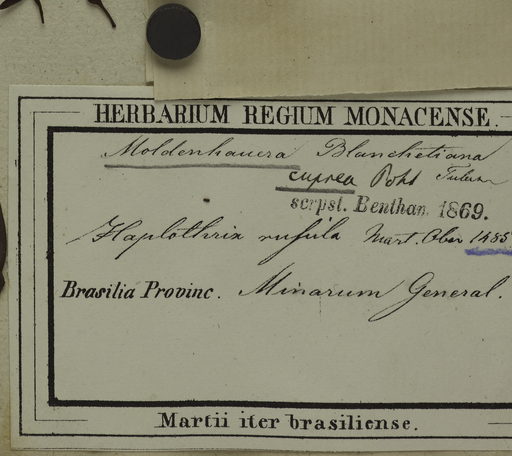 HERBARIUM REGIUM MONACENSE.
Moldenhauera Blanchetiana
cuprea Pohl Tulasn
scrpst. Benthan. 1869.
Haplothrix rufula Mart. Obs 1485
Brasilia Provinc. Minarum General.
Martii iter brasiliense.